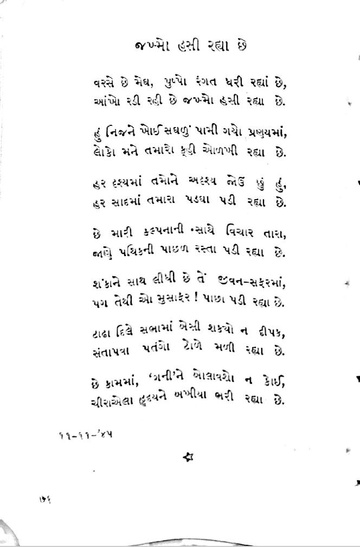 જખ્મો હસી રહ્યા છે
વરસે છે મેઘ, પુષ્પો રંગત ધરી રહ્યાં છે,
આંખો રડી રહી છે જખ્મો હસી રહ્યા છે.
હું નિજને ખોઈ સઘળું પામી ગયો પ્રણયમાં,
લોકો મને તમારો કહી ઓળખી રહ્યા છે.
હર દૃશ્યમાં તમોને અદૃશ્ય જોઉં છું હું,
હર સાદમાં તમારા પડઘા પડી રહ્યા છે.
છે મારી કલ્પનાની સાથે વિચાર તારા,
જાણે પથિકની પાછળ રસ્તા પડી રહ્યા છે.
શંકાને સાથ લીધી છે તેં જીવન-સફરમાં,
પગ તેથી ઓ મુસાફર ! પાછા પડી રહ્યા છે.
ટાઢા દિલે સભામાં બેસી શક્યો ન દીપક,
સંતાપવા પતંગો ટોળે મળી રહ્યા છે.
છે કામમાં, ‘ગની’ને બોલાવશો ન કોઈ,
ચીરાએલા હૃદયને બખીયા ભરી રહ્યા છે.
૧૧-૧૧-’૪૫
૫૬